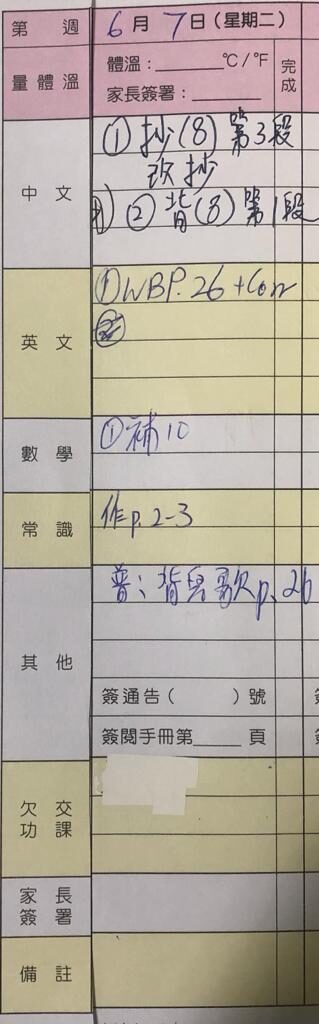 第 週 6月7日(星期二)
量體溫 體溫：______°C/°F 完成
家長簽署：______
中文 ①抄(8)第3段
改抄
②背(8)第1段
英文 ①WBP.26+Corr
②
數學 ①補10
常識 作p.2-3
其他 普：背兒歌p.26
簽通告( )號
簽閱手冊第____頁
欠交功課
家長簽署
備註